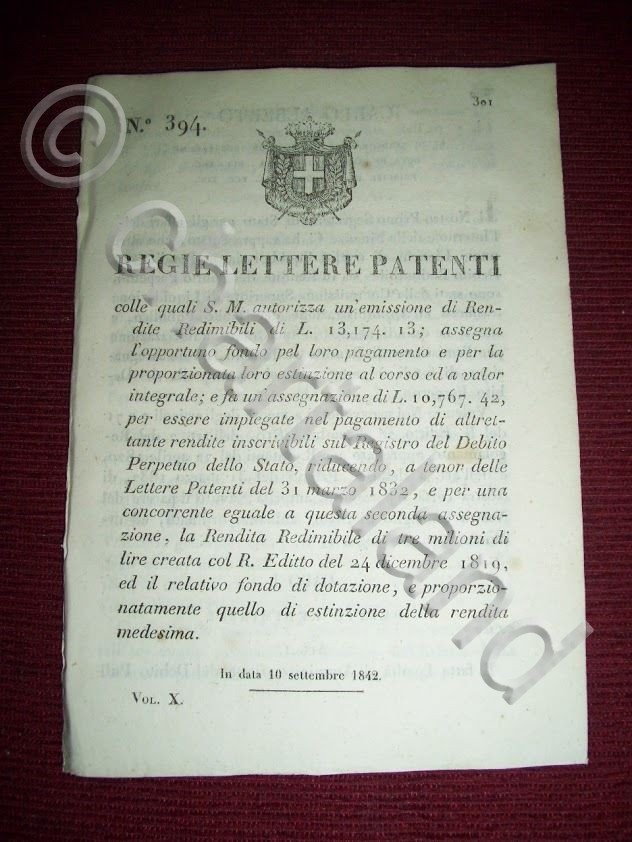 301
N.º 394.
REGIE LETTERE PATENTI
colle quali S. M. autorizza un'emissione di Ren-
dite Redimibili di L. 13,174. 13; assegna
l'opportuno fondo pel loro pagamento e per la
proporzionata loro estinzione al corso ed a valor
integrale; e fa un'assegnazione di L. 10,767. 42,
per essere impiegate nel pagamento di altret-
tante rendite inscrivibili sul Registro del Debito
Perpetuo dello Stato, riducendo, a tenor delle
Lettere Patenti del 31 marzo 1832, e per una
concorrente eguale a questa seconda assegna-
zione, la Rendita Redimibile di tre milioni di
lire creata col R. Editto del 24 dicembre 1819,
ed il relativo fondo di dotazione, e proporzio-
natamente quello di estinzione della rendita
medesima.
In data 10 settembre 1842.
VOL. X.